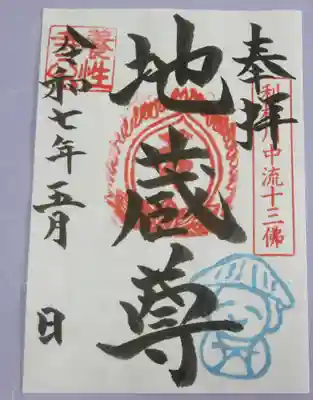 奉拝
利根川中流十三佛
地蔵尊
令和七年五月 日